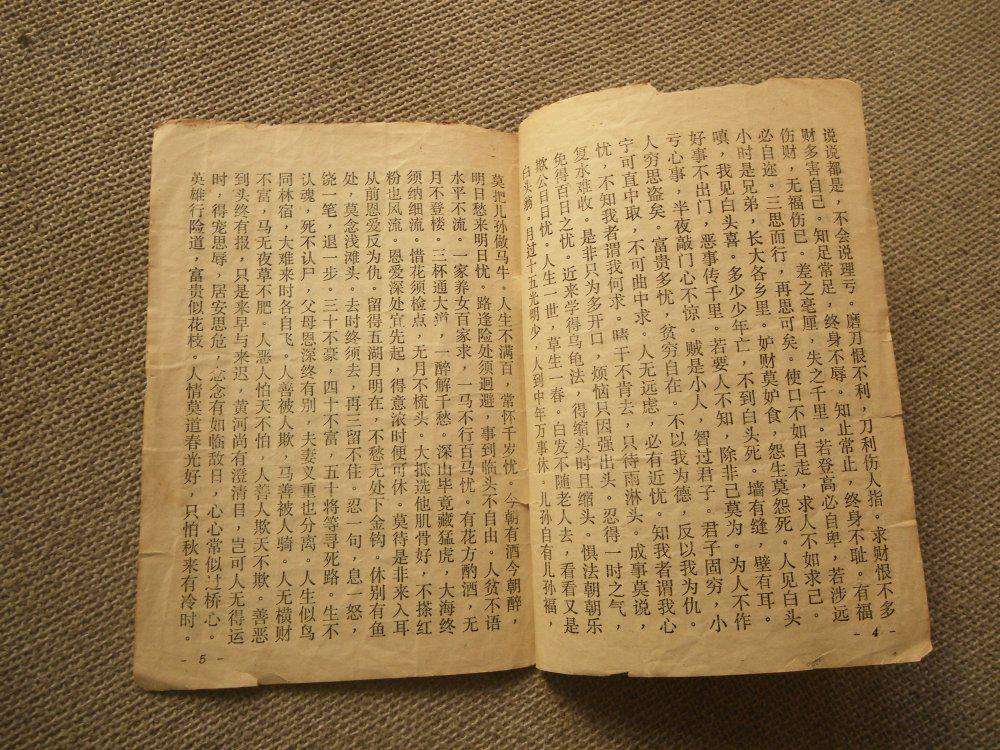 说说都是，不会说理亏。磨刀恨不利，刀利伤人指。求财恨不多
财多害自己。知足常足，终身不辱。知止常止，终身不耻。有福
伤财，无福伤己。差之毫厘，失之千里。若登高必自卑，若涉远
必自迩。三思而行，再思可矣。使口不如自走，求人不如求己。
小时是兄弟，长大各乡里。妒财莫妒食，怨生莫怨死。人见白头
嗔，我见白头喜。多少少年亡，不到白头死。墙有缝，壁有耳。
好事不出门，恶事传千里。若要人不知，除非己莫为。为人不作
亏心事，半夜敲门心不惊。贼是小人，智过君子。君子固穷，小
人穷思盗矣。富贵多忧，贫穷自在。不以我为德，反以我为仇。
宁可直中取，不可曲中求，人无远虑，必有近忧。知我者谓我心
忧，不知我者谓我何求。晴干不肯去，只待雨淋头。成事莫说，
复水难收。是非只为多开口，烦恼只因强出头。忍得一时之气，
免得百日之忧。近来学得乌龟法，得缩头时且缩头。惧法朝朝乐
欺公日日忧。人生一世，草生一春。白发不随老人去，看看又是
白头翁。月过十五光明少，人到中年万事休。儿孙自有儿孙福，
- 4 -
莫把儿孙做马牛。人生不满百，常怀千岁忧。今朝有酒今朝醉，
明日愁来明日忧。路逢险处须迴避，事到临头不自由。人贫不语
水平不流。一家养女百家求，一马不行百马忧。有花方酌酒，无
月不登楼。三杯通大道，一醉解千愁。深山毕竟藏猛虎，大海终
须纳细流。惜花须检点，无月不梳头。大抵选他肌骨好，不搽红
粉也风流。恩爱深处宜先起，得意浓时便可休。莫待是非来入耳
从前恩爱反为仇。留得五湖月明在，不愁无处下金钩。休别有鱼
处，莫念浅滩头。去时终须去，再三留不住。忍一句，息一怒，
饶一笔，退一步。三十不豪，四十不富，五十将等寻死路。生不
认魂，死不认尸，父母恩深终有别，夫妻义重也分离。人生似鸟
同林宿，大难来时各自飞。人善被人欺，马善被人骑。人无横财
不富，马无夜草不肥。人恶人怕天不怕，人善人欺天不欺。善恶
到头终有报，只是来早与来迟，黄河尚有澄清目，岂可人无得运
时，得宠思辱，居安思危，念念有如临敌日，心心常似过桥心。
英雄行险道，富贵似花枝。人情莫道春光好，只怕秋来有冷时。
- 5 -